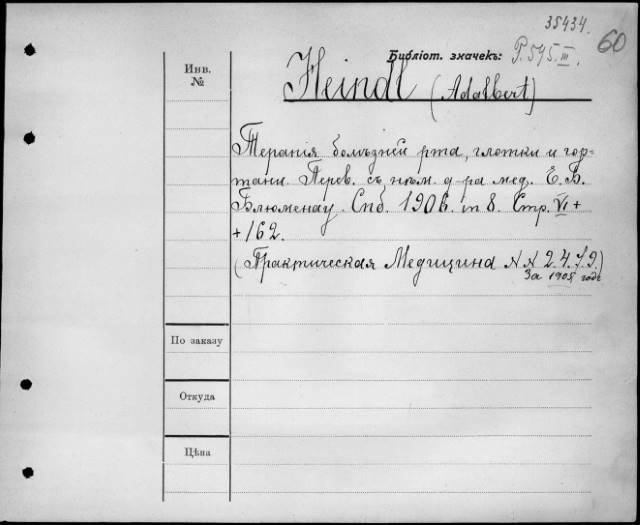 35434.
60
Библіот. значекъ: P.545.III.
Инв.
№
Heindl (Adalbert)
Терапія болѣзней рта, глотки и гор-
тани. Перев. съ нѣм. д-ра мед. Е. В.
Блюменау. Спб. 1906. in 8. Стр. VI +
+ 162.
(Практическая Медицина NN 2.4.7.9)
За 1905 годъ
По заказу
Откуда
Цѣна